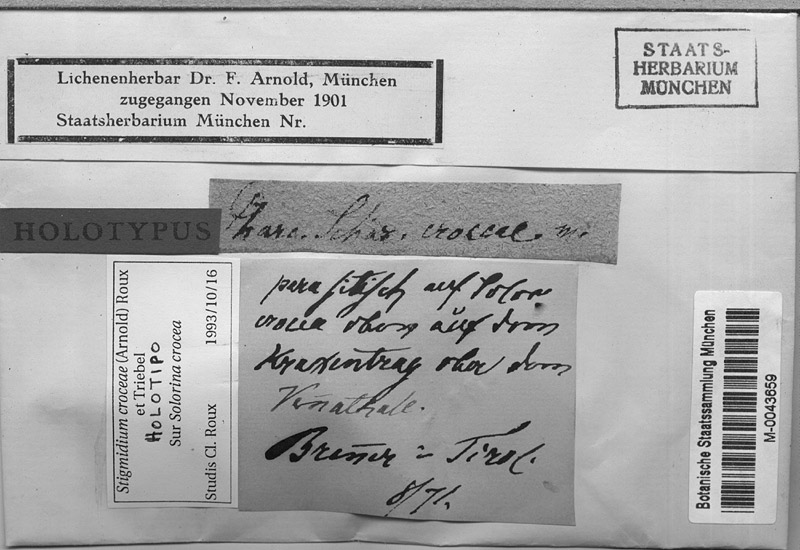 Lichenenherbar Dr. F. Arnold, München
zugegangen November 1901
Staatsherbarium München Nr.
STAATS-
HERBARIUM
MÜNCHEN
HOLOTYPUS
croceae m.
Stigmidium croceae (Arnold) Roux
et Triebel
HOLOTIPO
Sur Solorina crocea
Studis Cl. Roux 1993/10/16
parasitisch auf Solor.
crocea oben auf dem
Kraxentrag ober dem
Vennathale.
Brenner - Tirol.
8/71.
Botanische Staatssammlung München
M-0043659